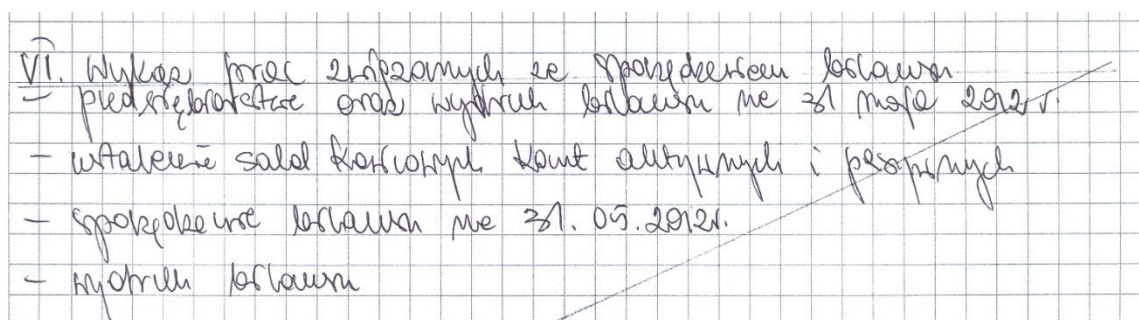 VI. Wykaz prac związanych ze sporządzeniem bilansu
- przedsiębiorstwie oraz wydruk bilansu na 31 maja 2012 r.
- ustalenie sald końcowych kont aktywnych i pasywnych
- sporządzenie bilansu na 31.05.2012r.
- wydruk bilansu